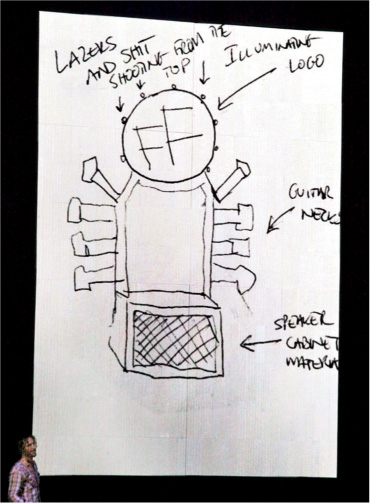 LAZERS
AND SHIT
SHOOTING FROM THE
TOP
ILLUMINATING
LOGO
FF
GUITAR
NECKS
SPEAKER
CABINET
MATERIAL